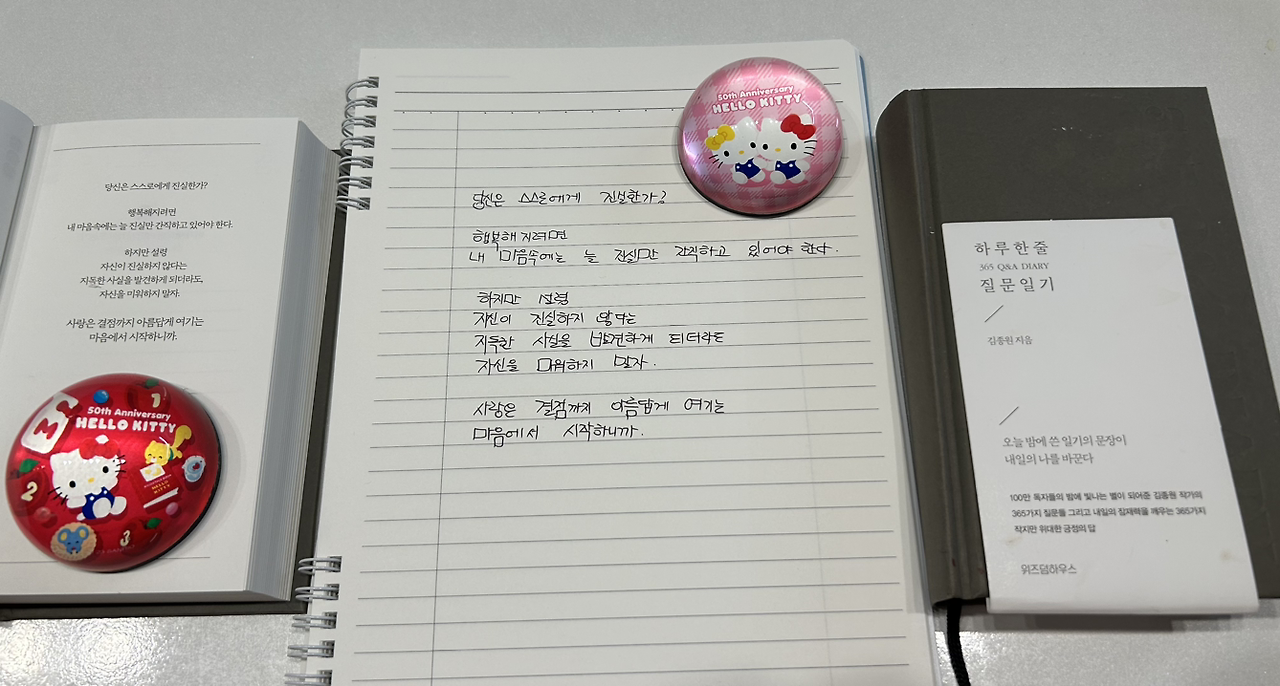 당신은 스스로에게 진실한가?
행복해지려면
내 마음속에는 늘 진실만 간직하고 있어야 한다.
하지만 설령
자신이 진실하지 않다는
지독한 사실을 발견하게 되더라도,
자신을 미워하지 말자.
사랑은 결점까지 아름답게 여기는
마음에서 시작하니까.
50th Anniversary
HELLO KITTY
1
2
3
50th Anniversary
HELLO KITTY
당신은 스스로에게 진실한가?
행복해지려면
내 마음속에는 늘 진실만 간직하고 있어야 한다.
하지만 설령
자신이 진실하지 않다는
지독한 사실을 발견하게 되더라도
자신을 미워하지 말자.
사랑은 결점까지 아름답게 여기는
마음에서 시작하니까.
하루 한 줄
365 Q&A DIARY
질문 일기
김종원 지음
오늘 밤에 쓴 일기의 문장이
내일의 나를 바꾼다
100만 독자들의 밤에 빛나는 별이 되어준 김종원 작가의
365가지 질문들 그리고 내일의 잠재력을 깨우는 365가지
작지만 위대한 긍정의 답
위즈덤하우스